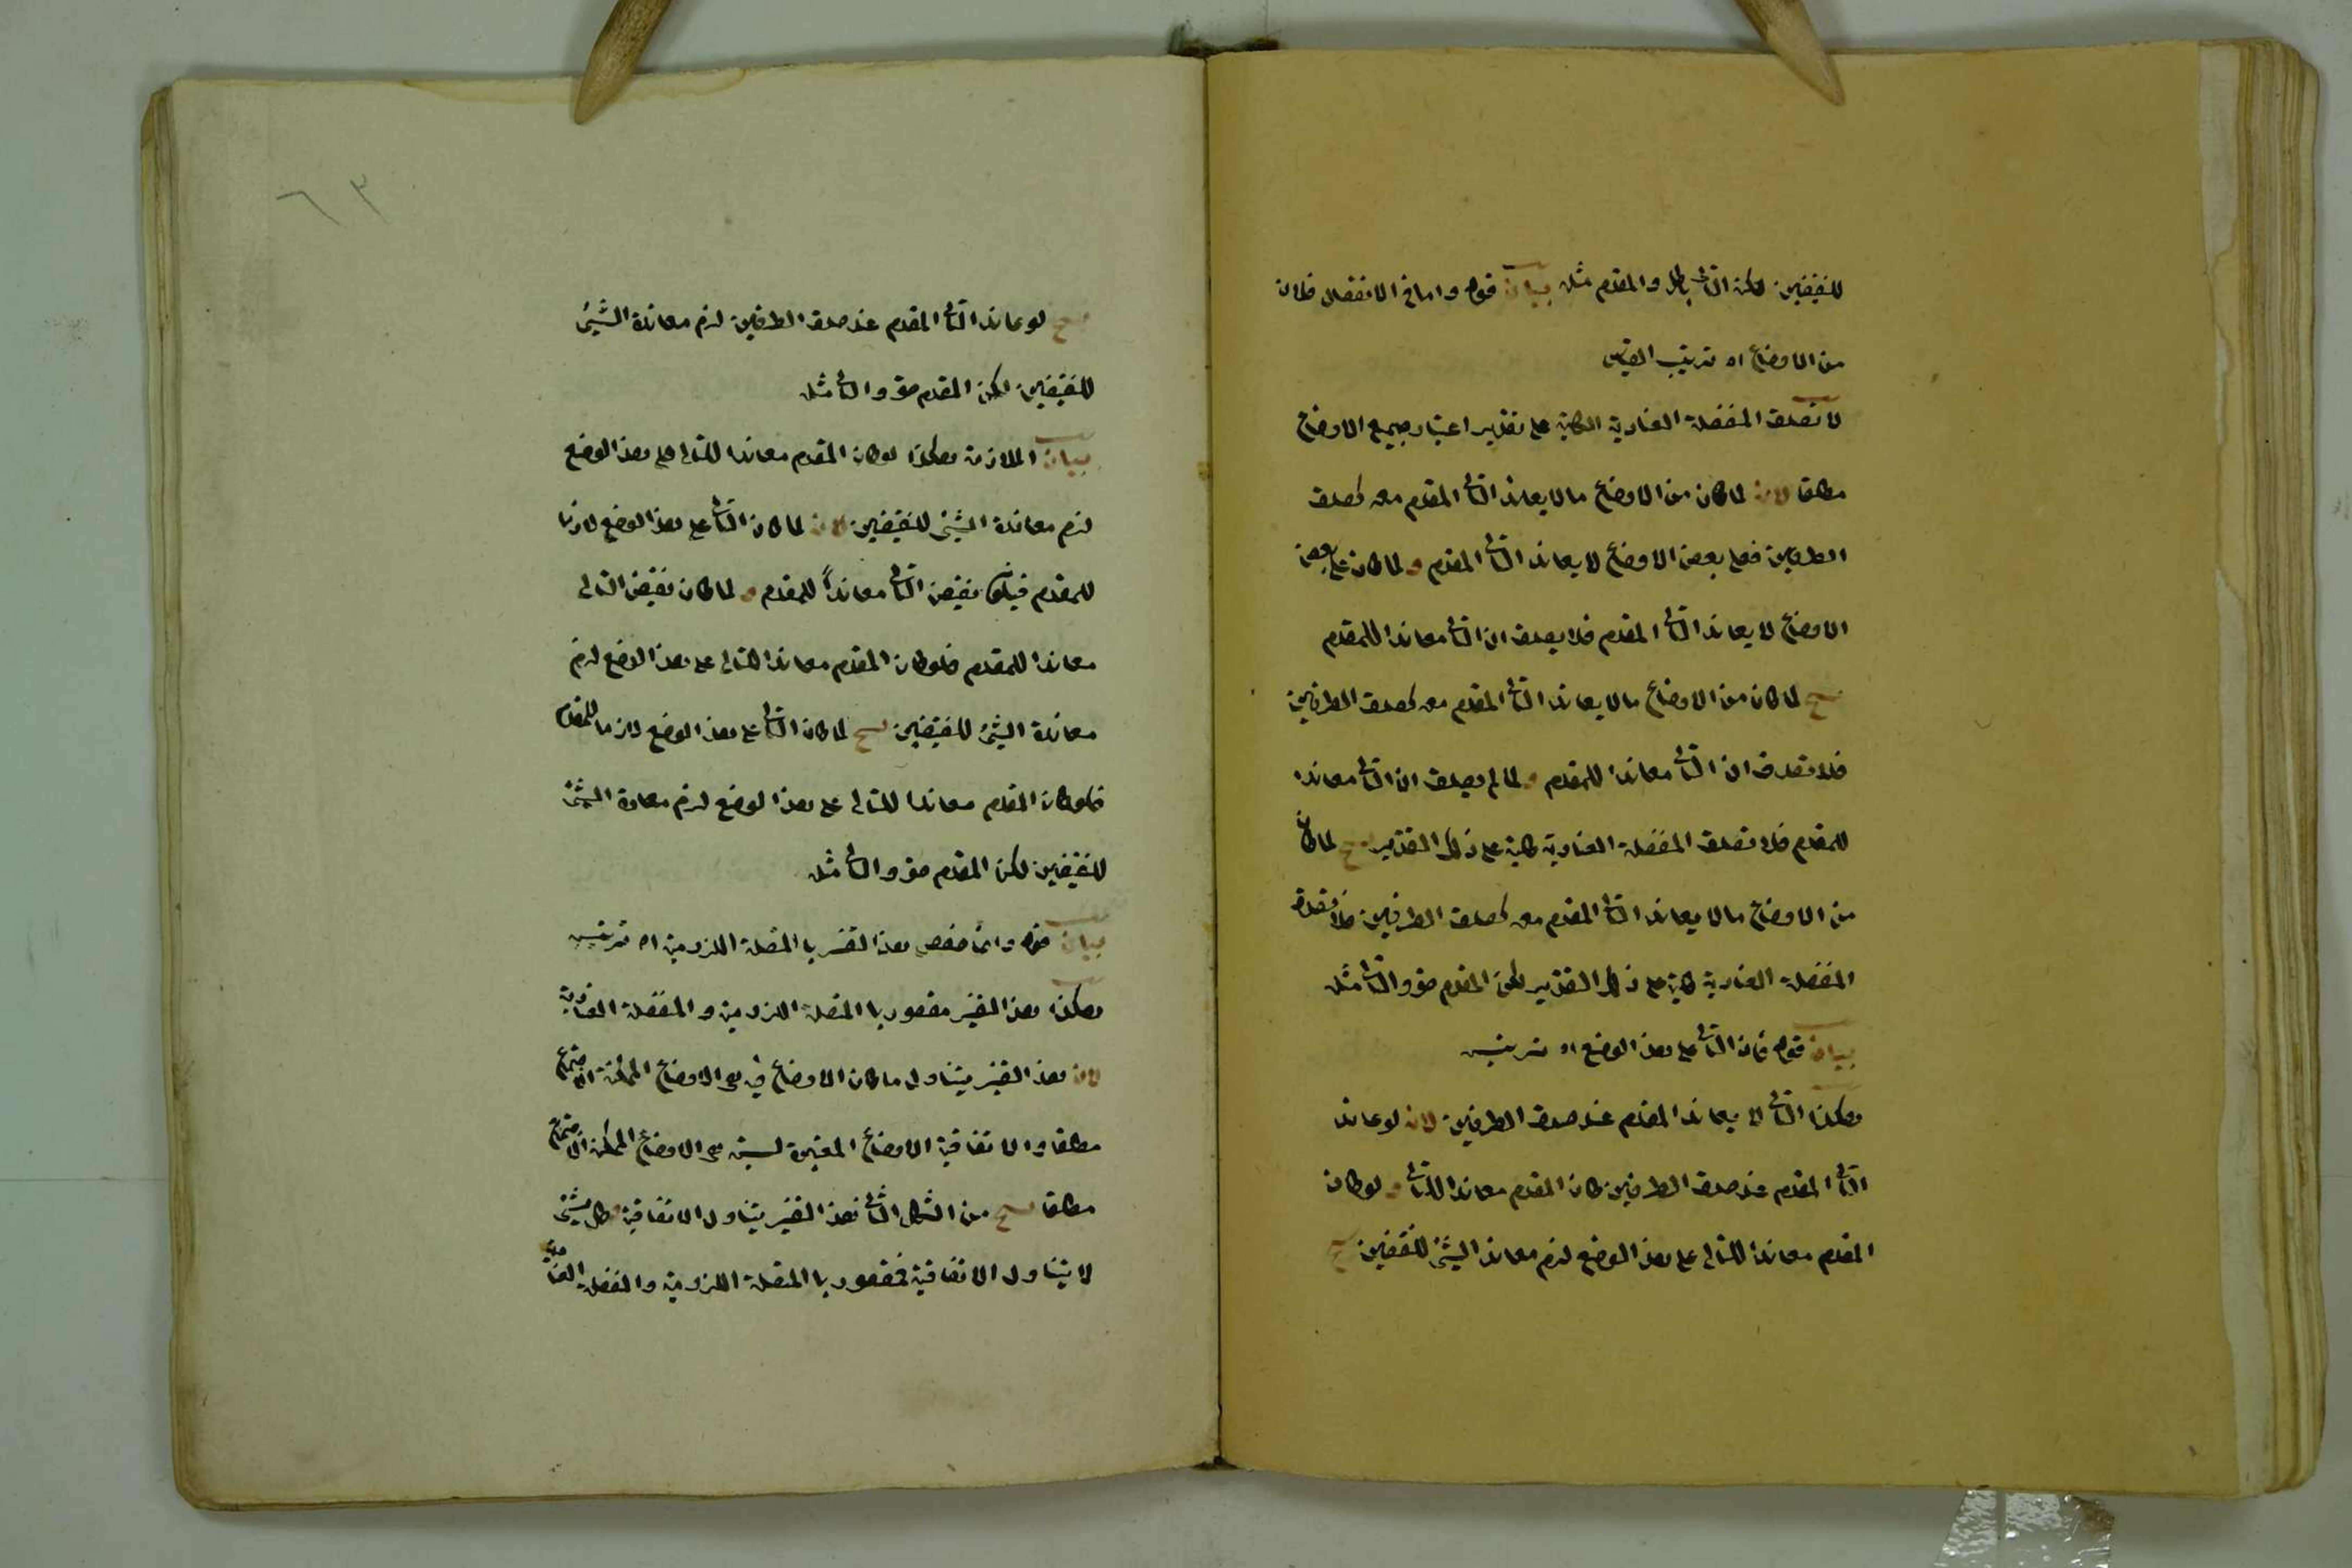 للنقيضين لكن التالى باطل والمقدم مثله بيان قوله واما فى الانفصال فلان
من الاوضاع اه ترتيب القياس
لا تصدق المنفصلة العنادية الكلية على تقدير اعتبار جميع الاوضاع
مطلقا لان لما كان من الاوضاع ما لا يعاند التالى المقدم معه كصدق
الطرفين فعلى بعض الاوضاع لا يعاند التالى المقدم و لما كان على بعض
الاوضاع لا يعاند التالى المقدم فلا يصدق ان التالى معاندا للمقدم
ينتج لما كان من الاوضاع ما لا يعاند التالى المقدم معه كصدق الطرفين
فلا تصدق ان التالى معاندا للمقدم و لما لم يصدق ان التالى معاندا
للمقدم فلا تصدق المنفصلة العنادية كلية على ذلك التقدير ينتج لما كان
من الاوضاع ما لا يعاند التالى المقدم معه كصدق الطرفين فلا تصدق
المنفصلة العنادية كلية على ذلك التقدير لكن المقدم حق والتالى مثله
بيان قوله فان التالى على هذا الوضع اه ترتيبه
هكذا التالى لا يعاند المقدم عند صدق الطرفين لان لو عاند
التالى المقدم عند صدق الطرفين كان المقدم معاندا للتالى و لو كان
المقدم معاندا للتالى على هذا الوضع لزم معاند الشئ للنقيضين ينتج
٦٣
ينتج لو عاند التالى المقدم عند صدق الطرفين لزم معاندة الشئ
للنقيضين لكن المقدم حق والتالى مثله
بيان الملازمة هكذا لو كان المقدم معاندا للتالى على هذا الوضع
لزم معاندة الشئ للنقيضين لان لما كان التالى على هذا الوضع لازما
للمقدم فيكون نقيض التالى معانداً للمقدم و لما كان نقيض التالى
معاندا للمقدم فلو كان المقدم معاندا للتالى على هذا الوضع لزم
معاندة الشئ للنقيضين ينتج لما كان التالى على هذا الوضع لازما للمقدم
فلو كان المقدم معاندا للتالى على هذا الوضع لزم معاندة الشئ
للنقيضين لكن المقدم حق والتالى مثله
بيان قوله وانما خصص هذا التفسير بالمتصلة اللزومية اه ترتيبه
هكذا هذا التفسير مقصور بالمتصلة اللزومية والمنفصلة العنادية
لان هذا التفسير يتناول ما كان الاوضاع فيه هى الاوضاع الممكنة الاجتماع
مطلقا والاتفاقية الاوضاع المعتبرة ليست هى الاوضاع الممكن الاجتماع
مطلقا ينتج من الشكل الثانى هذا التفسير يتناول الاتفاقية وكل شئ
لا يتناول الاتفاقية فمقصور بالمتصلة اللزومية والمنفصلة العنادية